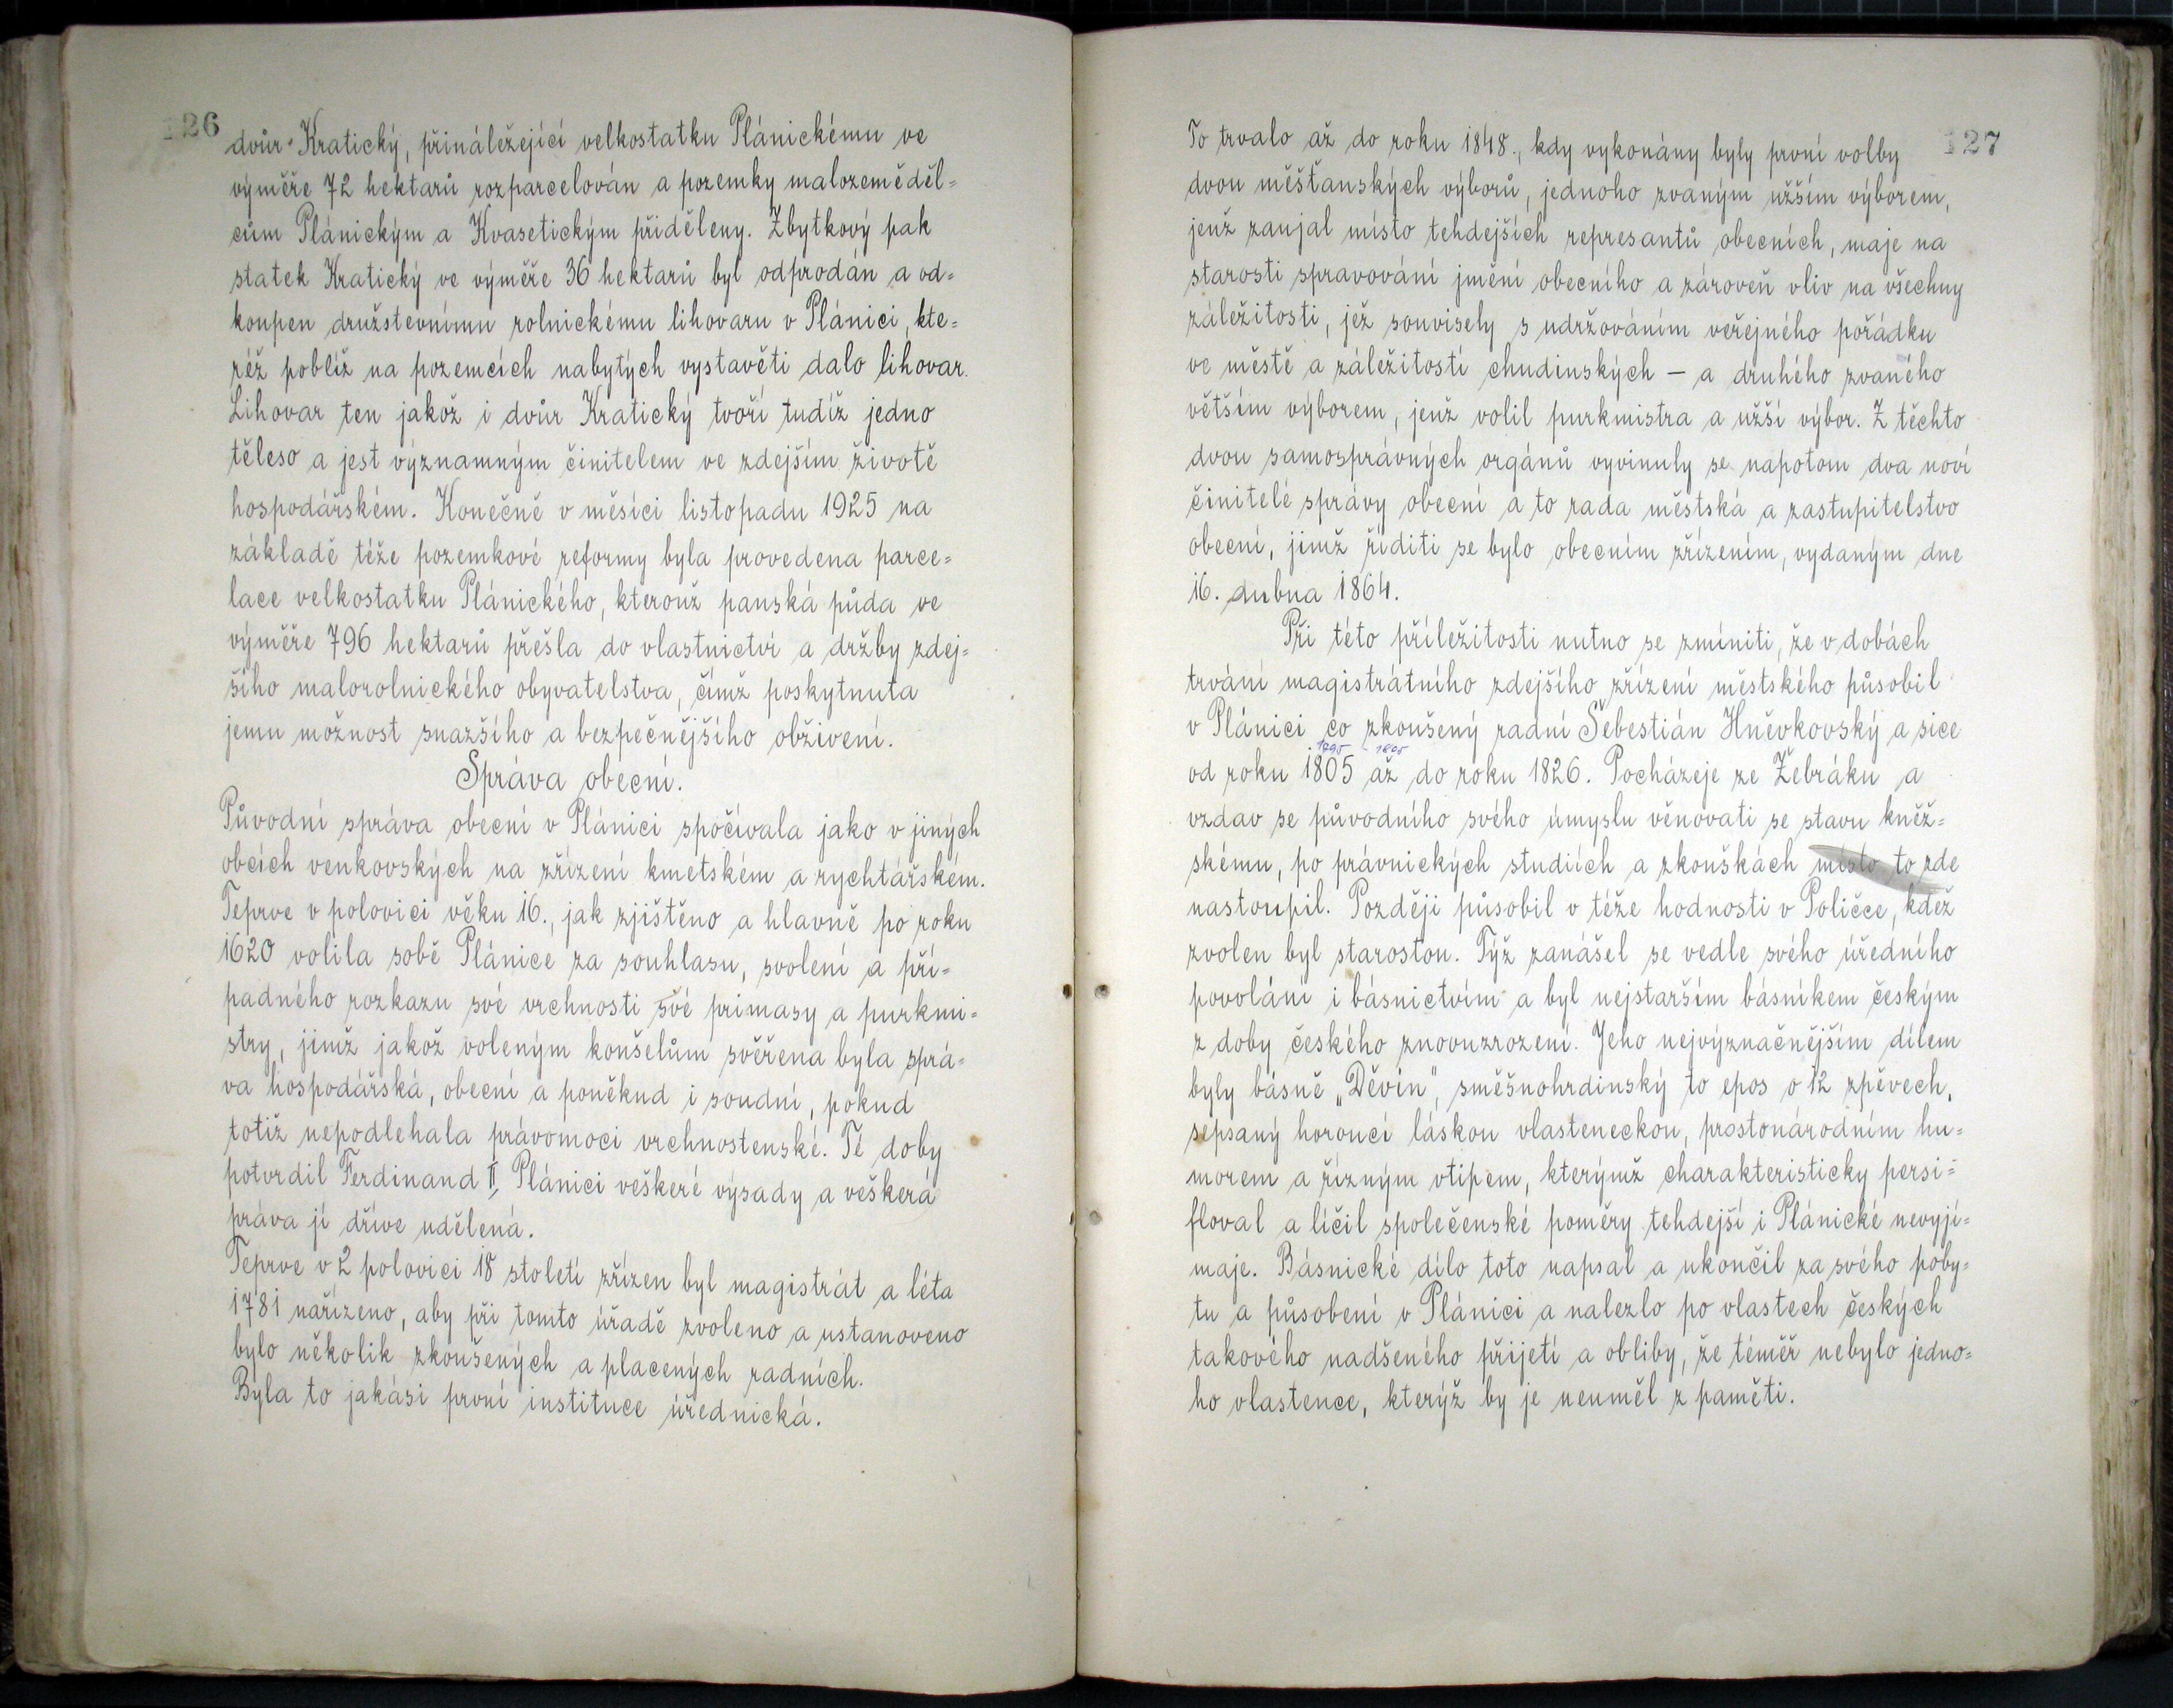 126
dvůr Kratický, přináležející velkostatku Plánickému ve
výměře 72 hektarů rozparcelován a pozemky malozeměděl=
cům Plánickým a Kvasetickým přiděleny. Zbytkový pak
statek Kratický ve výměře 36 hektarů byl odprodán a od=
koupen družstevnímu rolnickému lihovaru v Plánici, kte=
réž poblíž na pozemcích nabytých vystavěti dalo lihovar.
Lihovar ten jakož i dvůr Kratický tvoří tudíž jedno
těleso a jest významným činitelem ve zdejším životě
hospodářském. Konečně v měsíci listopadu 1925 na
základě téže pozemkové reformy byla provedena parce=
lace velkostatku Plánického, kterouž panská půda ve
výměře 796 hektarů přešla do vlastnictví a držby zdej=
šího malorolnického obyvatelstva, čímž poskytnuta
jemu možnost snazšího a bezpečnějšího obživení.
Správa obecní.
Původní správa obecní v Plánici spočívala jako v jiných
obcích venkovských na zřízení kmetském a rychtářském.
Teprve v polovici věku 16., jak zjištěno a hlavně po roku
1620 volila sobě Plánice za souhlasu, svolení a pří=
padného rozkazu své vrchnosti své primasy a purkmi=
stry, jimž jakož voleným konšelům svěřena byla sprá=
va hospodářská, obecní a poněkud i soudní, pokud
totiž nepodlehala právomoci vrchnostenské. Té doby
potvrdil Ferdinand II, Plánici veškeré výsady a veškerá
práva jí dříve udělená.
Teprve v 2 polovici 18 století zřízen byl magistrát a léta
1781 nařízeno, aby při tomto úřadě zvoleno a ustanoveno
bylo několik zkoušených a placených radních.
Byla to jakási první instituce úřednická.
127
To trvalo až do roku 1848., kdy vykonány byly první volby
dvou měšťanských výborů, jednoho zvaným užším výborem,
jenž zaujal místo tehdejších represantů obecních, maje na
starosti spravování jmění obecního a zároveň vliv na všechny
záležitosti, jež souvisely s udržováním veřejného pořádku
ve městě a záležitostí chudinských — a druhého zvaného
větším výborem, jenž volil purkmistra a užší výbor. Z těchto
dvou samosprávných orgánů vyvinuly se napotom dva noví
činitelé správy obecní a to rada městská a zastupitelstvo
obecní, jimž říditi se bylo obecním zřízením, vydaným dne
16. dubna 1864.
Při této příležitosti nutno se zmíniti, že v dobách
trvání magistrátního zdejšího zřízení městského působil
v Plánici co zkoušený radní Šebestián Hněvkovský a sice
od roku 1805 až do roku 1826. Pocházeje ze Žebráku a
vzdav se původního svého úmyslu věnovati se stavu kněž=
skému, po právnických studiích a zkouškách místo to zde
nastoupil. Později působil v téže hodnosti v Poličce, kdež
zvolen byl starostou. Týž zanášel se vedle svého úředního
povolání i básnictvím a byl nejstarším básníkem českým
z doby českého znovuzrození. Jeho nejvýznačnějším dílem
byly básně „Děvín", směšnohrdinský to epos o 12 zpěvech,
sepsaný horoucí láskou vlasteneckou, prostonárodním hu=
morem a řízným vtipem, kterýmž charakteristicky persi=
floval a líčil společenské poměry tehdejší i Plánické nevyjí=
maje. Básnické dílo toto napsal a ukončil za svého poby=
tu a působení v Plánici a nalezlo po vlastech českých
takového nadšeného přijetí a obliby, že téměř nebylo jedno=
ho vlastence, kterýž by je neuměl z paměti.